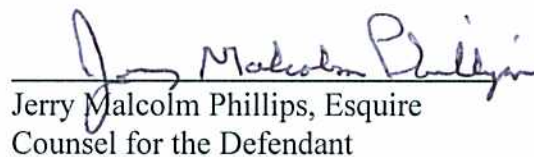 Jerry Malcolm Phillips
Jerry Malcolm Phillips, Esquire
Counsel for the Defendant